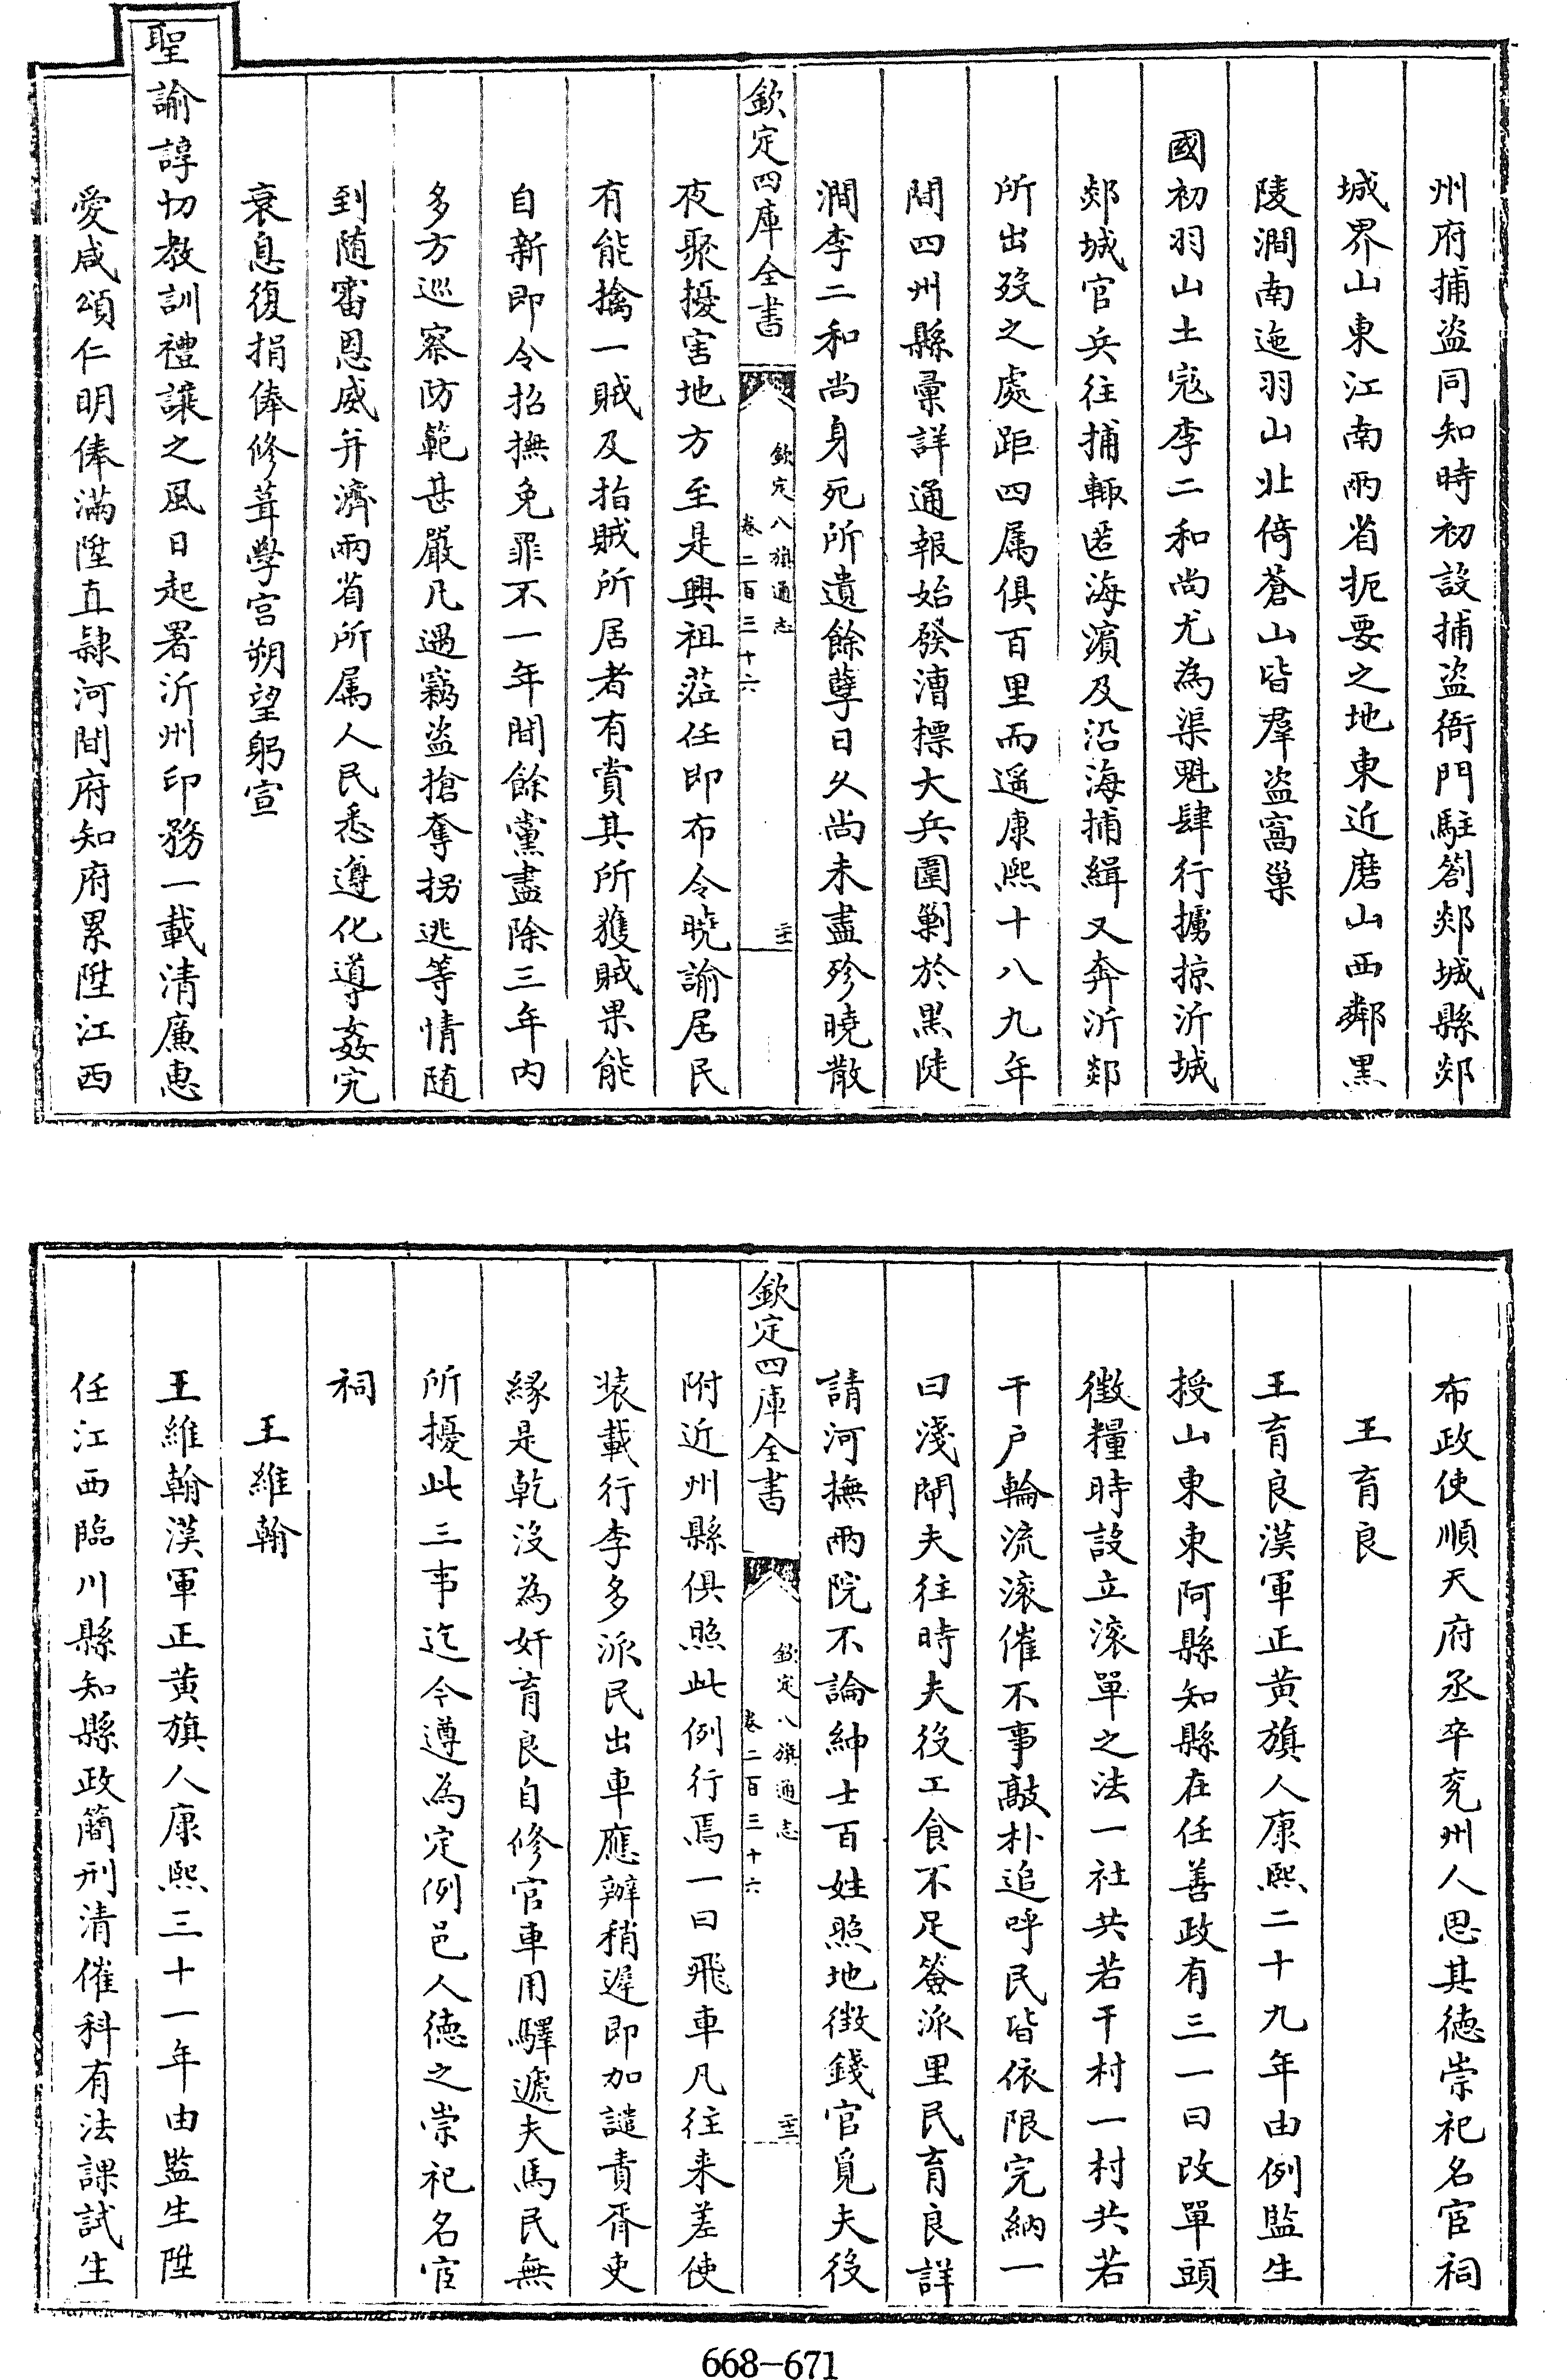 州府捕盗同知時初設捕盗衙門駐劄郯城縣郯
城界山東江南兩省扼要之地東近磨山西鄰黑
陵澗南迤羽山北倚蒼山皆羣盗窩巢
國初羽山土寇李二和尚尤為渠魁肆行擄掠沂城
郯城官兵往捕輙匿海濵及沿海捕緝又奔沂郯
所出歿之處距四属俱百里而遥康熙十八九年
間四州縣彚詳通報始發漕標大兵圍剿於黑陡
澗李二和尚身死所遺餘孽日久尚未盡殄曉散
欽定四庫全書
欽定八旗通志
卷二百三十六
二十二
夜聚擾害地方至是興祖蒞任即布令曉諭居民
有能擒一賊及指賊所居者有賞其所獲賊果能
自新即令招撫免罪不一年間餘黨盡除三年内
多方巡察防範甚嚴凡遇竊盗搶奪拐逃等情随
到随審恩威并濟兩省所属人民悉遵化導姦宄
衰息復捐俸修葺學宫朔望躬宣
聖諭諄切教訓禮讓之風日起署沂州印務一載清廉惠
愛咸頌仁明俸滿陞直隷河間府知府累陞江西
布政使順天府丞卒兖州人思其德崇祀名宦祠
王育良
王育良漢軍正黄旗人康熙二十九年由例監生
授山東東阿縣知縣在任善政有三一曰改單頭
徴糧時設立滚單之法一社共若干村一村共若
干户輪流滚催不事敲朴追呼民皆依限完納一
曰淺閘夫往時夫役工食不足簽派里民育良詳
請河撫兩院不論紳士百姓照地徴錢官覓夫役
欽定四庫全書
欽定八旗通志
卷二百三十六
二十三
附近州縣俱照此例行焉一曰飛車凡往来差使
装載行李多派民出車應辦稍遲即加譴責胥吏
緣是乾没為奸育良自修官車用驛遞夫馬民無
所擾此三事迄今遵為定例邑人德之崇祀名宦
祠
王維翰
王維翰漢軍正黄旗人康熙三十一年由監生陞
任江西臨川縣知縣政簡刑清催科有法課試生
668-671